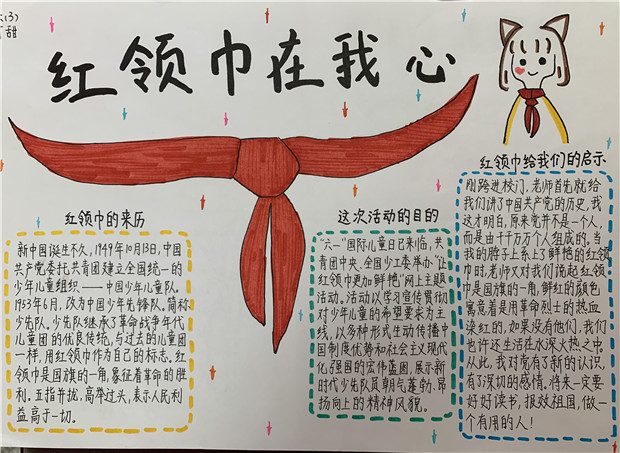 (3)
甜
红领巾在我心
红领巾的来历
新中国诞生不久,1949年10月13日,中国
共产党委托共青团建立全国统一的
少年儿童组织——中国少年儿童队。
1953年6月,改为中国少年先锋队。简称
少先队。少先队继承了革命战争年代
儿童团的优良传统,与过去的儿童团
一样,用红领巾作为自己的标志。红
领巾是国旗的一角,象征着革命的胜
利。五指并拢,高举过头,表示人民利
益高于一切。
这次活动的目的
“六一”国际儿童日已来临,共
青团中央、全国少工委举办“让
红领巾更加鲜艳”网上主题
活动。活动以学习宣传贯彻
对少年儿童的希望要求为主
线,以多种形式生动传播中
国制度优势和社会主义现代
化强国的宏伟蓝图,展示新
时代少先队员朝气蓬勃、昂
扬向上的精神风貌。
红领巾给我们的启示
刚跨进校门,老师首先就给
我们讲了中国共产党的历史,我
这才明白,原来党并不是一个人,
而是由千千万万个人组成的。当
我的脖子上系上了鲜艳的红领
巾时,老师又对我们说起红领
巾是国旗的一角,鲜红的颜色
寓意着是用革命烈士的热血
染红的,如果没有他们,我们
也许还生活在水深火热之中。
从此,我对党有了新的认识,
有了深切的感情。将来一定要
好好读书,报效祖国,做一
个有用的人!